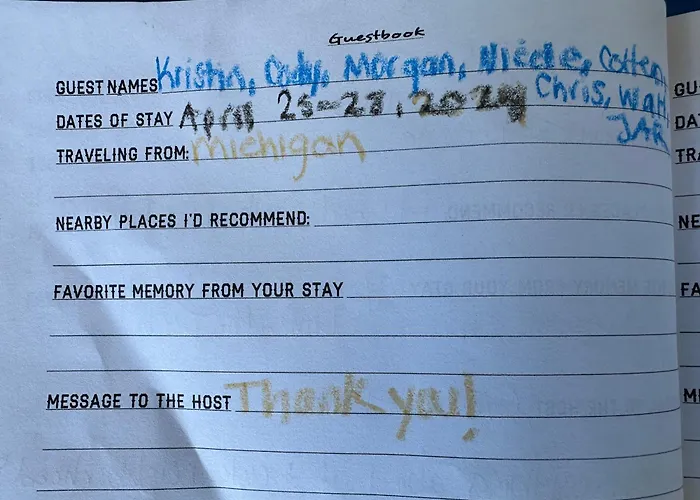 Guestbook
GUEST NAMES Kristin, Cody, Morgan, Nicole, Colleen,
Chris, Walt
JAR
DATES OF STAY April 25-28, 2024
TRAVELING FROM: Michigan
NEARBY PLACES I'D RECOMMEND:
FAVORITE MEMORY FROM YOUR STAY
MESSAGE TO THE HOST Thank you!
GU
DA
TRA
NE
FA
ME